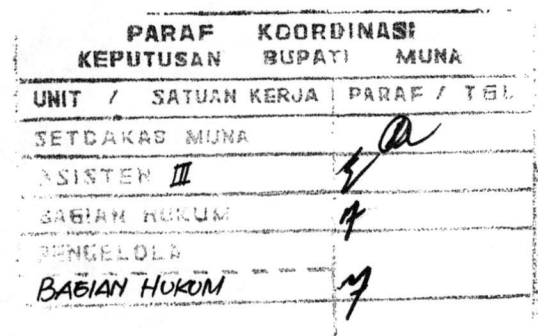 PARAF KOORDINASI
KEPUTUSAN BUPATI MUNA
UNIT / SATUAN KERJA PARAF / TGL
SETDAKAB MUNA
ASISTEN III
BAGIAN HUKUM
PENGELOLA
BAGIAN HUKUM